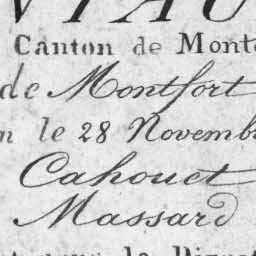 Canton de Mont
de Montfort
n le 28 Novemb
Cahouet
Massard